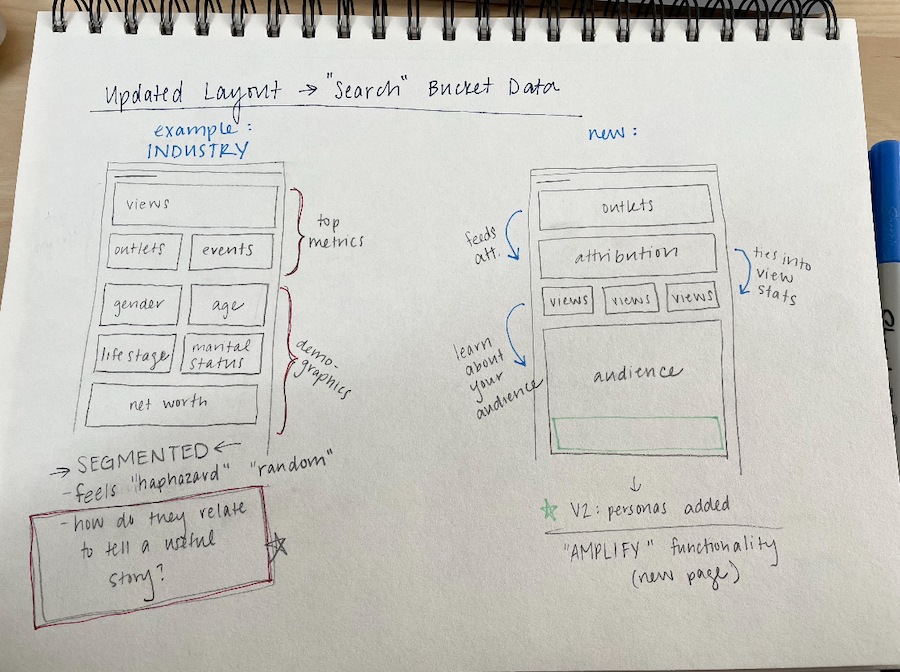 Updated Layout → "Search" Bucket Data
example:
INDUSTRY
views
outlets
events
top
metrics
gender
age
lifestage
marital
status
net worth
demo-
graphics
→ SEGMENTED ←
- feels "haphazard" "random"
- how do they relate
to tell a useful
story?
new:
outlets
feeds
att.
attribution
ties into
view
stats
views
views
views
learn
about
your
audience
audience
↓
V2: personas added
"AMPLIFY" functionality
(new page)